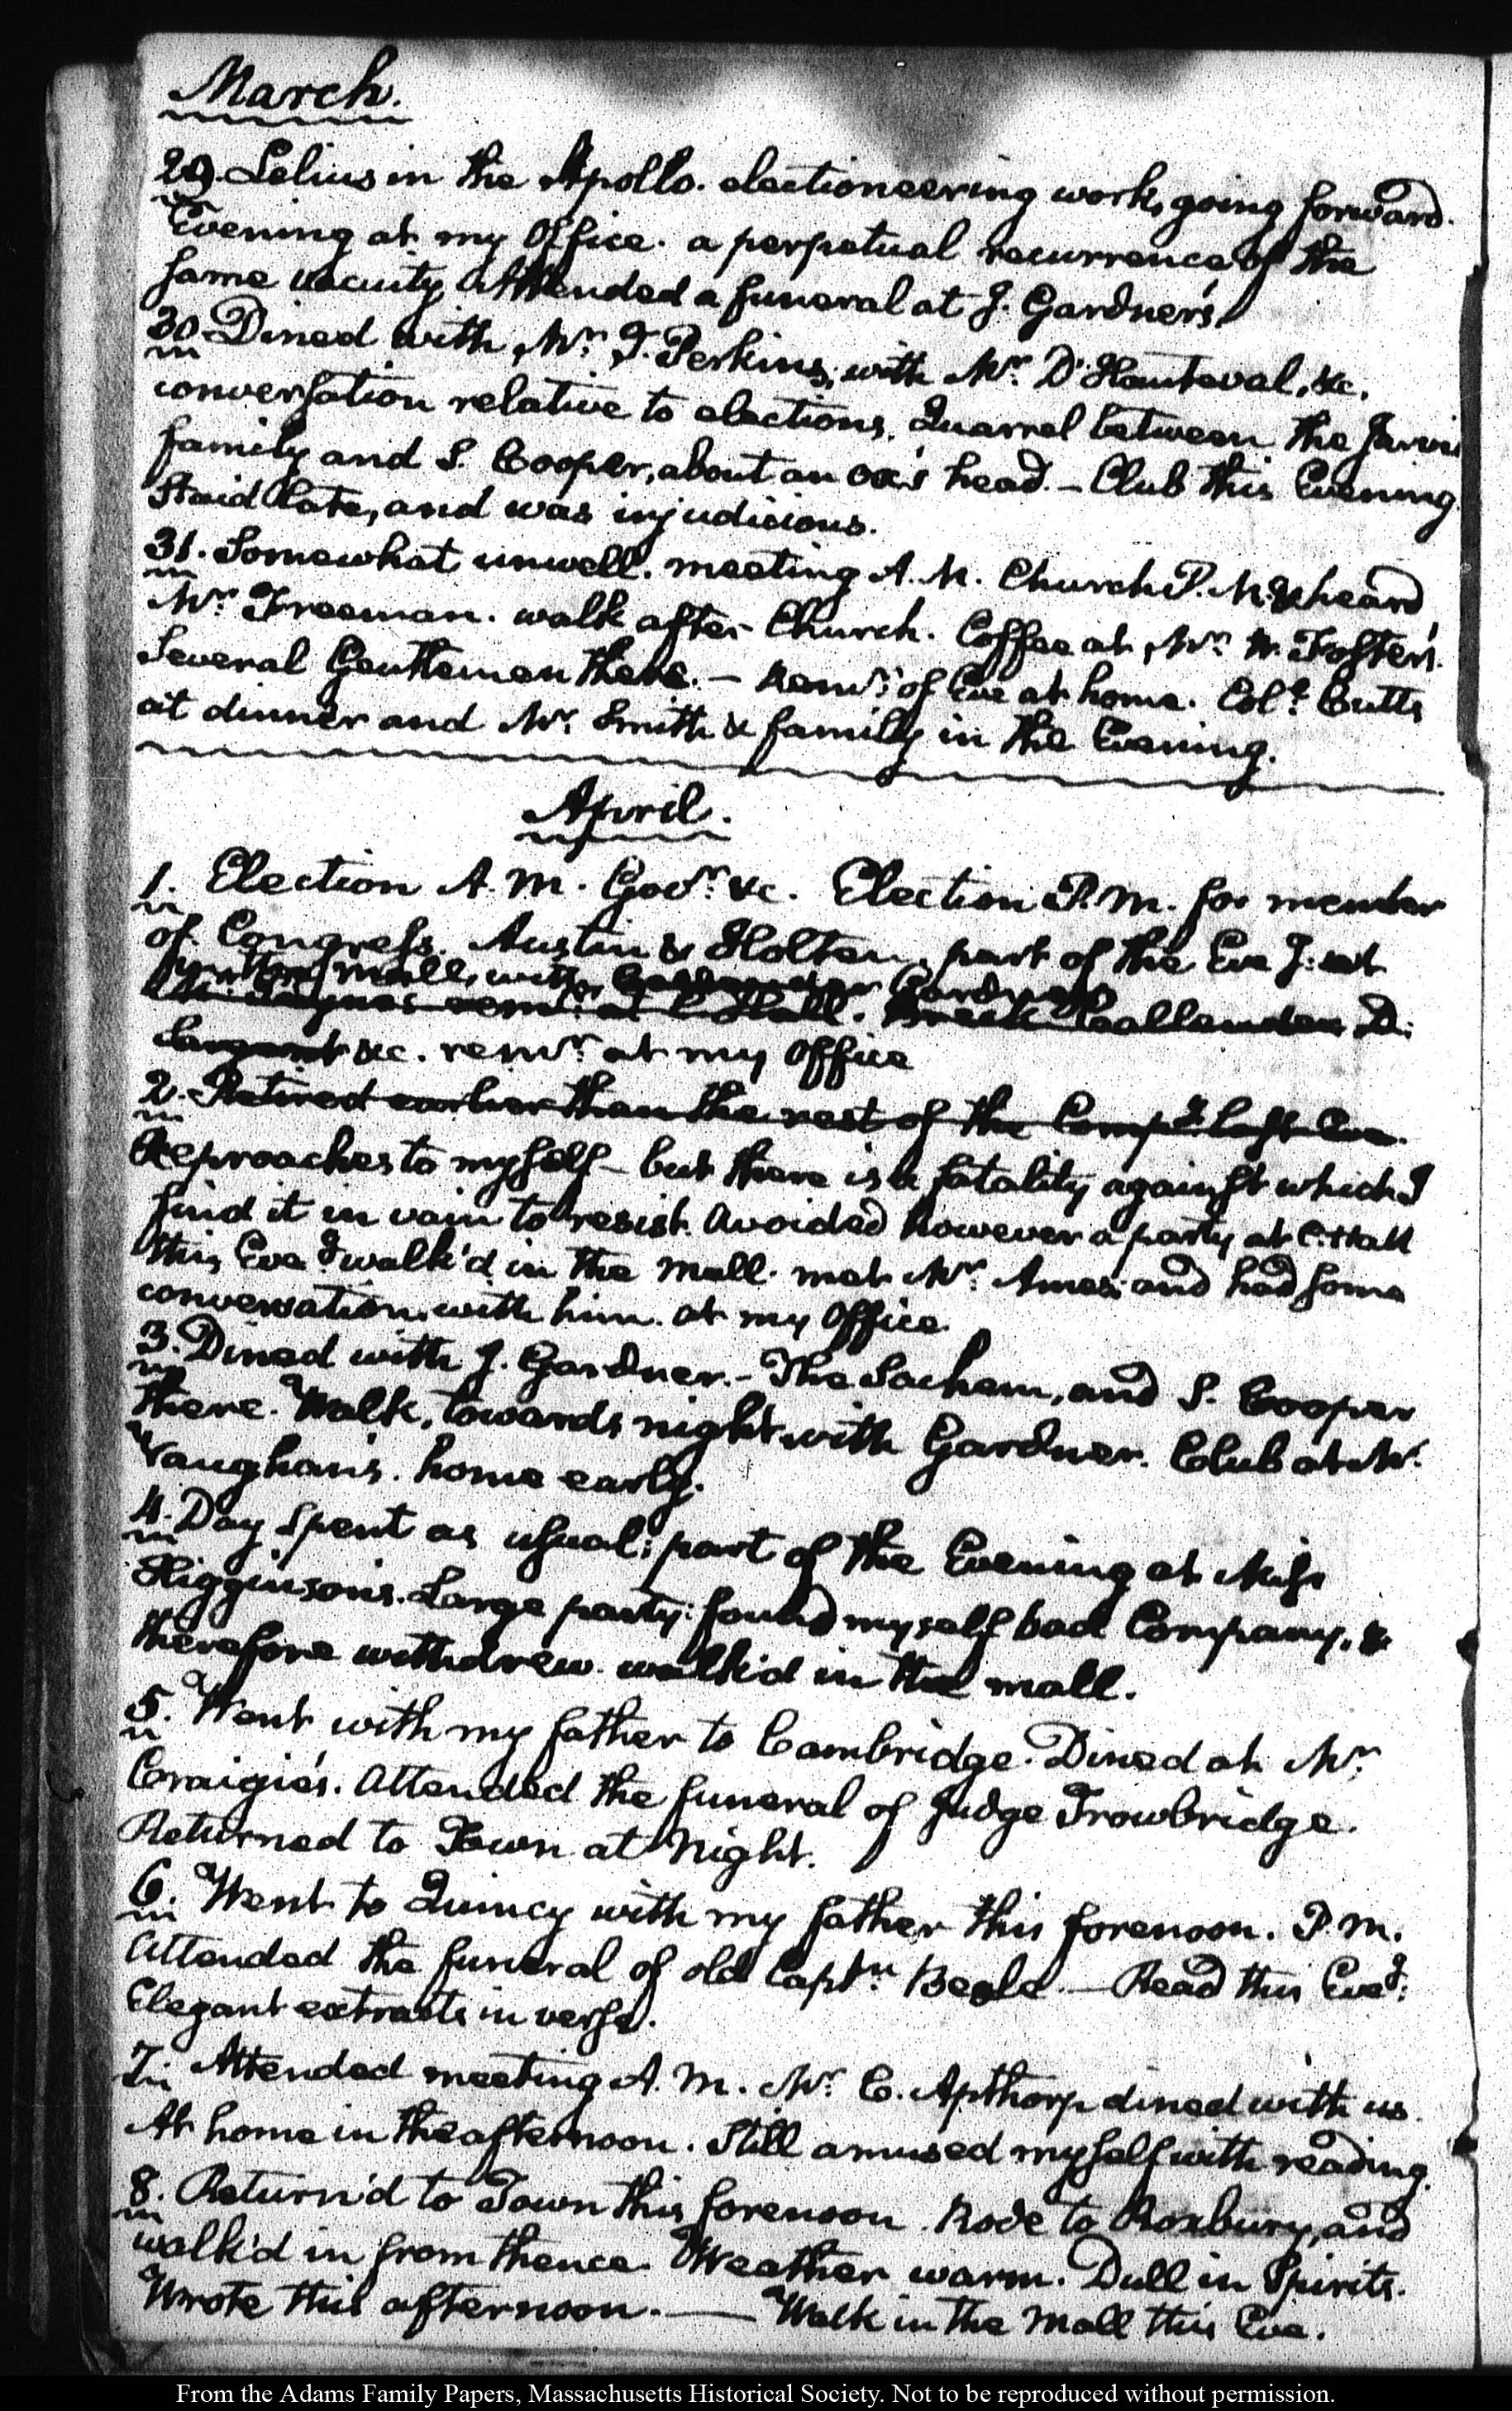 March.
29. Lelius in the Apollo. electioneering work, going forward.
Evening at my Office. a perpetual recurrence of the
same vacuity. Attended a funeral at J. Gardner's.
30. Dined with Mr. T. Perkins, with Mr. D'Hauteval, &c.
conversation relative to elections. Quarrel between the Jarvis
family and S. Cooper, about an ox's head. — Club this Evening
Staid late, and was injudicious.
31. Somewhat unwell. meeting A.M. Church P.M. & heard
Mr. Freeman. walk after Church. Coffee at Mr. W. Foster's.
Several Gentlemen there. — Remr. of Eve at home. Coll. Cutts
at dinner and Mr. Smith & family in the Evening.
April.
1. Election A.M. Govr. &c. Election P.M. for member
of Congress. Austin & Holten, part of the Eve g: at
mall, with Gardner
remr. at C. Hall. Breck Callender D.
Sargent &c. remr. at my Office
2. Retired earlier than the rest of the Compy. last Eve.
Reproaches to myself — but there is a fatality against which I
find it in vain to resist. Avoided however a party at C. Hall
this Eve g walk'd in the Mall. met Mr. Ames and had some
conversation with him. at my Office.
3. Dined with J. Gardner. — The Sachem, and S. Cooper
there. Walk, towards night with Gardner. Club at Mr.
Vaughan's. home early.
4. Day Spent as usual; part of the Evening at Miss
Higginson's. Large party: found myself bad Company, &
therefore withdrew. walk'd in the mall.
5. Went with my father to Cambridge. Dined at Mr.
Craigie's. Attended the funeral of Judge Trowbridge.
Returned to Town at Night.
6. Went to Quincy with my father this forenoon. P.M.
Attended the funeral of old Captn. Beale. — Read this Eve g:
Elegant extracts in verse.
7. Attended meeting A.M. Mr. C. Apthorp dined with us.
At home in the afternoon. Still amused myself with reading.
8. Return'd to Town this forenoon. Rode to Roxbury, and
walk'd in from thence. Weather warm. Dull in Spirits.
Wrote this afternoon. — Walk in the Mall this Eve.
From the Adams Family Papers, Massachusetts Historical Society. Not to be reproduced without permission.